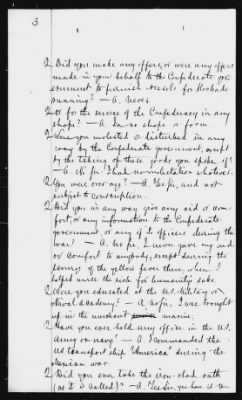 3
Q Did you make any offers, or were any offers
made in your behalf to the Confederate gov-
ernment to furnish vessels for blockade
running? — A. Never.
Q Or for the service of the Confederacy in any
shape? — A. In no shape or form.
Q Were you molested or disturbed in any
way by the Confederate government, except
by the taking of these goods you spoke of?
— A. No sir. I had no molestation whatever.
Q You were over age? — A. Yes sir, and not
subject to conscription.
Q Did you in any way give any aid or com-
fort, or any information to the Confederate
government, or any of its officers during the
war? — A. No sir, I never gave any aid
or comfort to anybody, except during the
of the yellow fever then, when I
helped nurse the sick for humanity sake.
Q Were you educated at the U.S. Military or
Naval academy? — A. No sir, I was brought
up in the merchant marine.
Q Have you ever held any office in the U.S.
Army or navy? — A. I commanded the
U.S. transport ship "America" during the
Mexican war.
Q Did you ever take the iron clad oath
(as it is called)? — A. Yes sir, you have it on